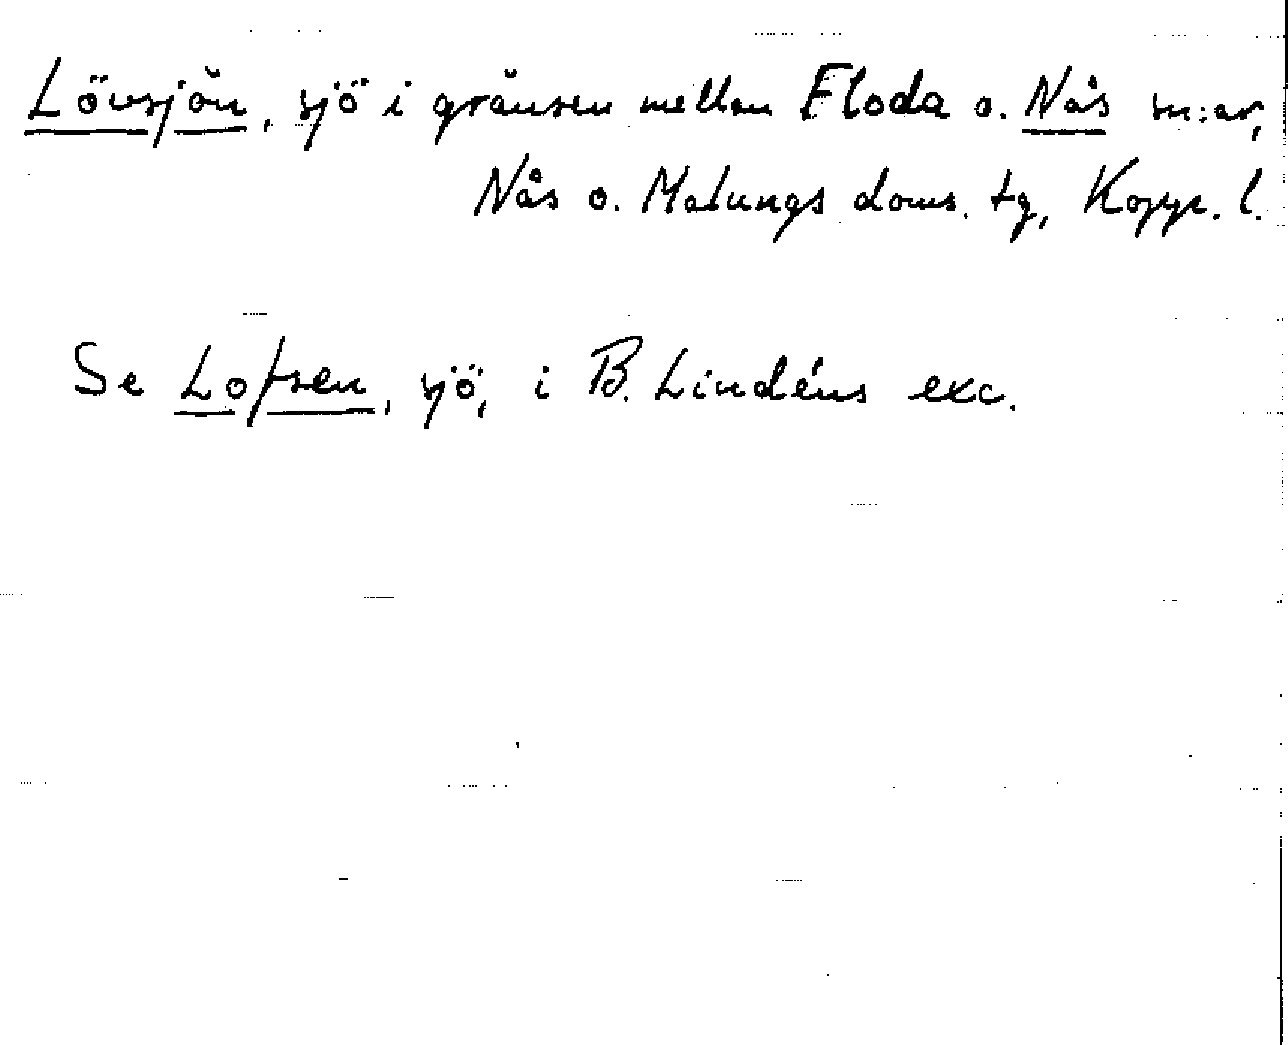 Lövsjön, sjö i gränsen mellan Floda o. Nås sn:ar,
Nås o. Malungs doms. tg, Kopp. l.
Se Lofsen, sjö, i B. Lindéns exc.